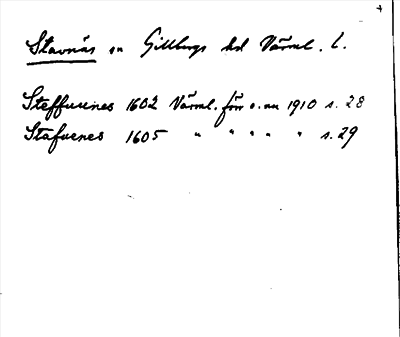 Stavnäs sn Gillbergs hd Värml. l.
Steffueness 1602 Värml. förr o. nu 1910 s. 28
Stafuenes 1605 " " " " " s. 29